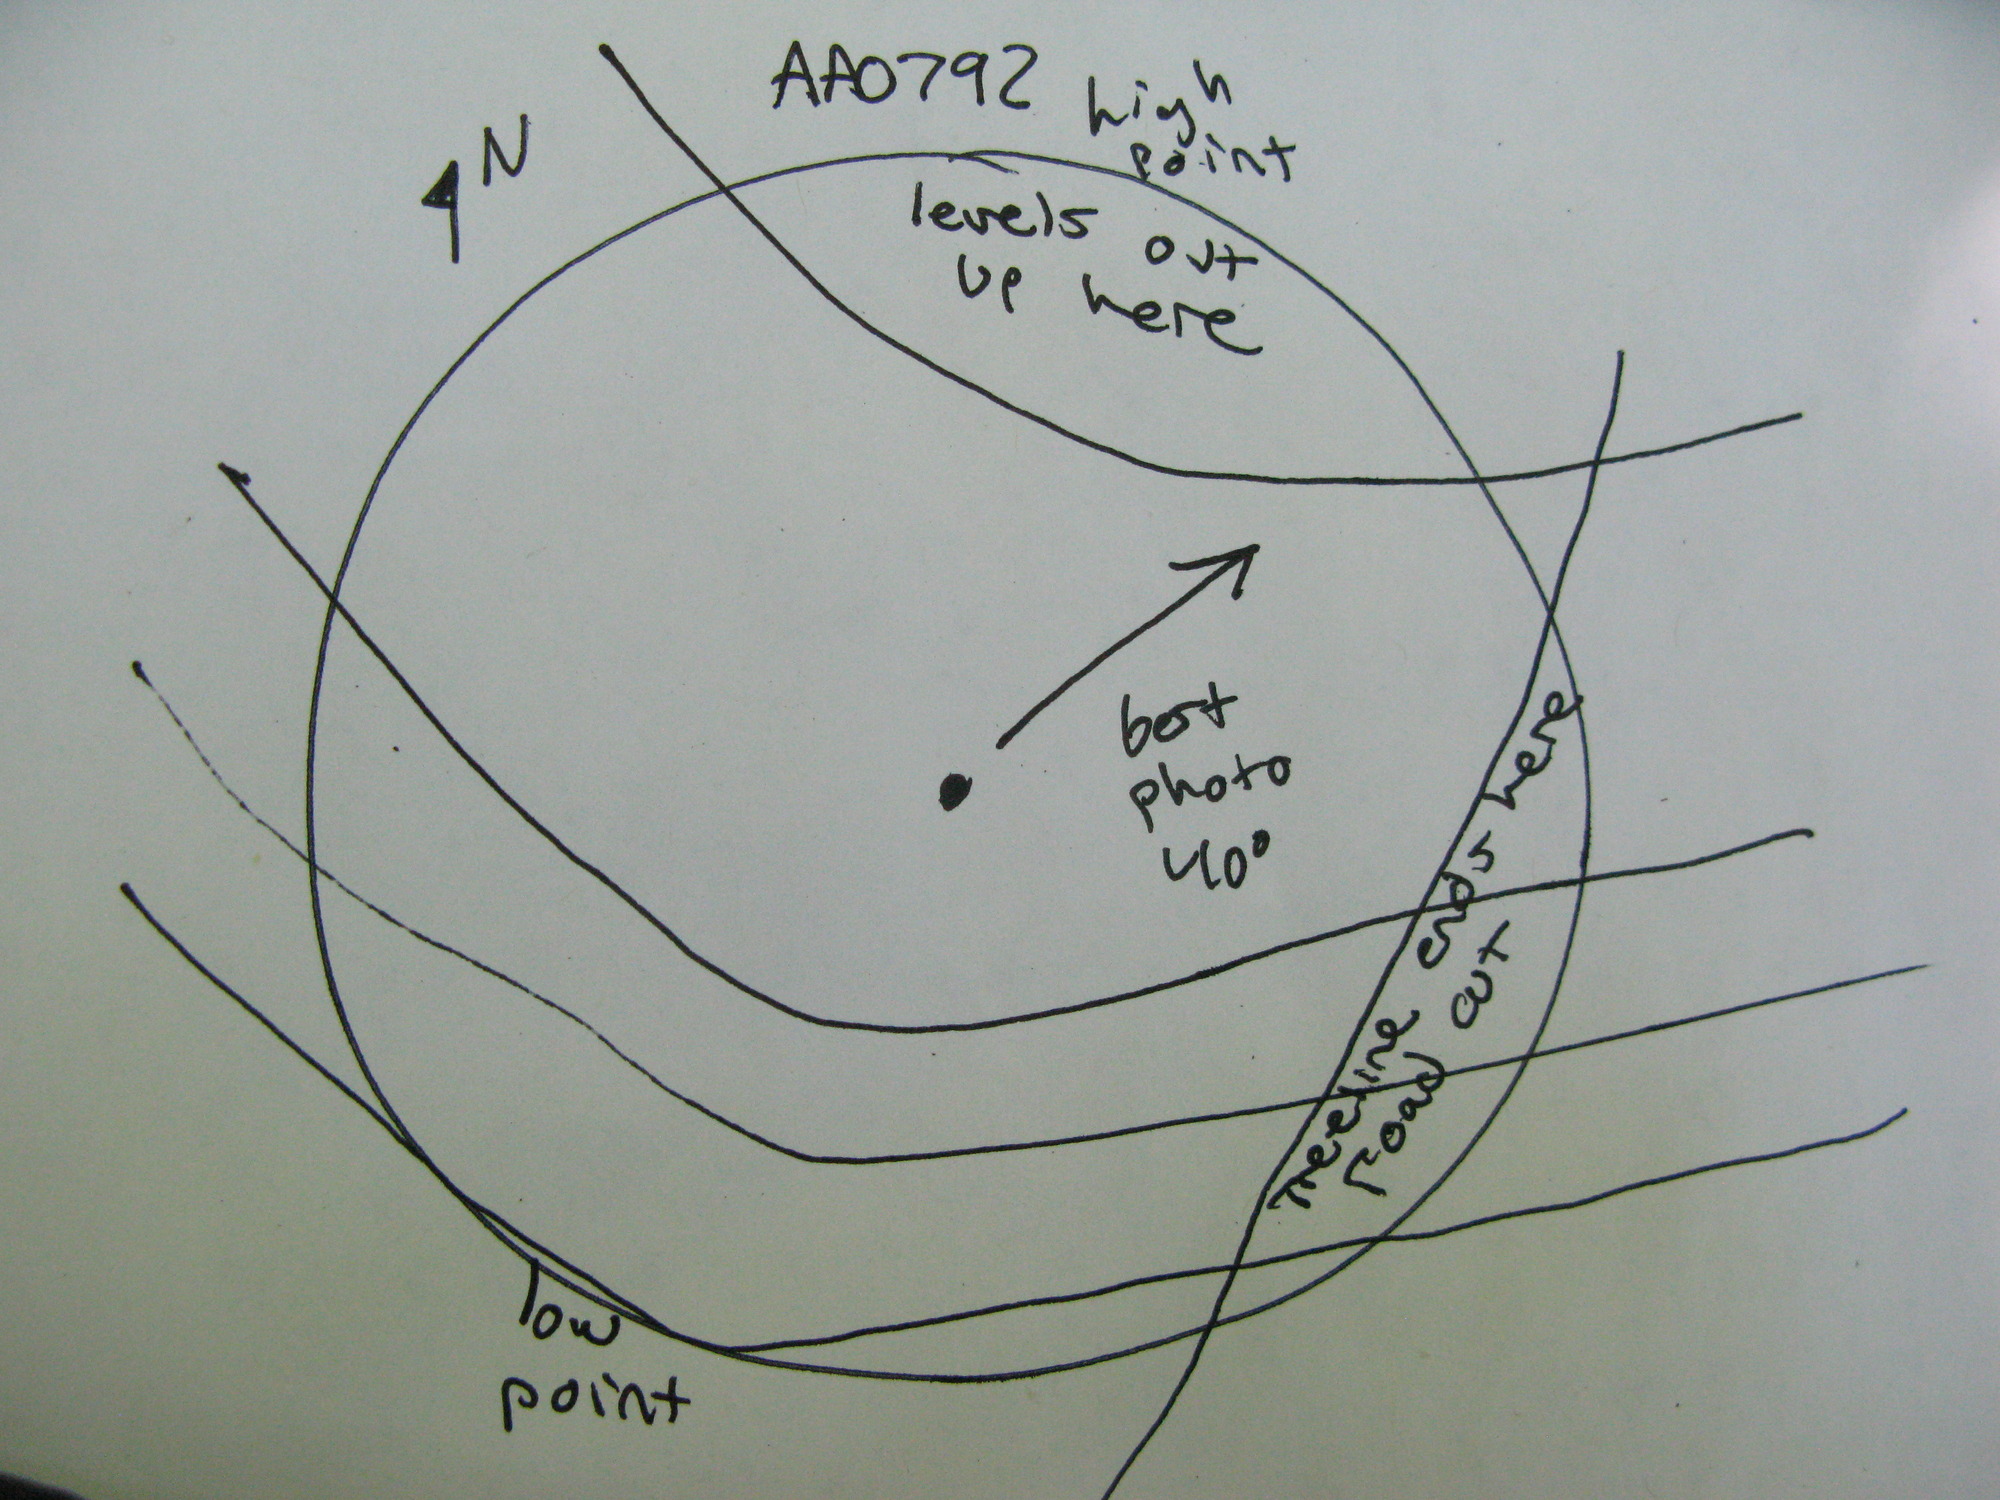 AA0792
high
point
N
levels out
up here
best
photo
40°
treeline ends here
road cut
low
point